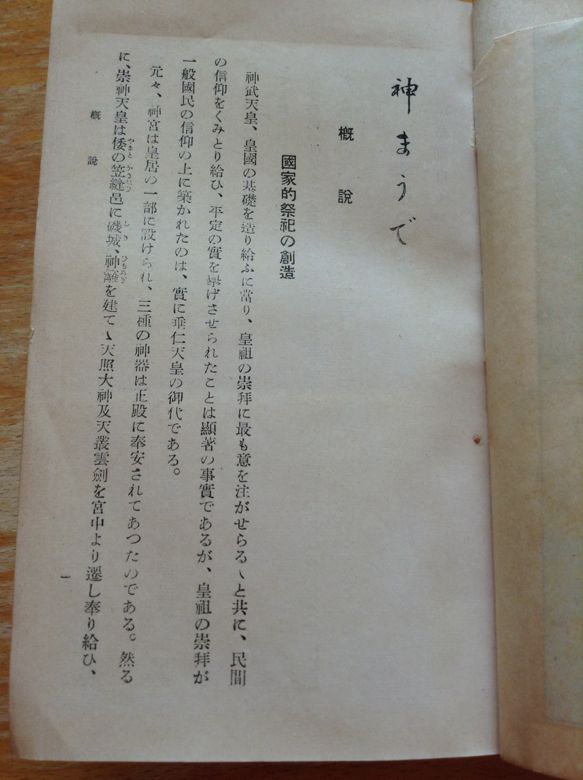 神まうで
概說
國家的祭祀の創造
神武天皇、皇國の基礎を造り給ふに當り、皇祖の崇拜に最も意を注がせらるゝと共に、民間
の信仰をくみとり給ひ、平定の實を擧げさせられたことは顯著の事實であるが、皇祖の崇拜が
一般國民の信仰の上に築かれたのは、實に垂仁天皇の御代である。
元々、神宮は皇居の一部に設けられ、三種の神器は正殿に奉安されてあつたのである。然る
に、崇神天皇は倭の笠縫邑に磯城、神籬を建てゝ天照大神及天叢雲劍を宮中より遷し奉り給ひ、
概說
一